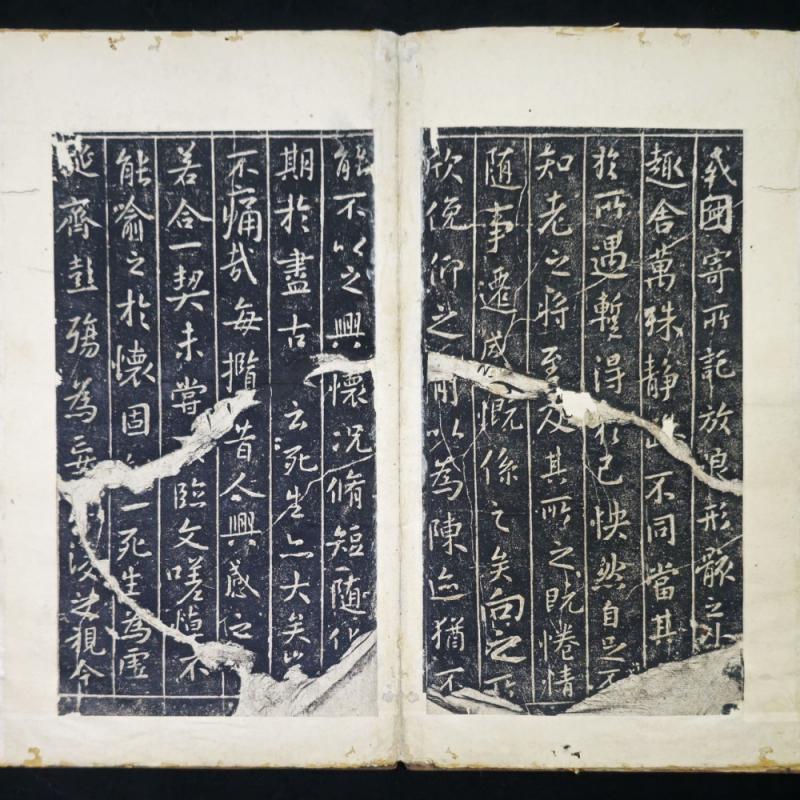 或因寄所託放浪形骸之外
趣舍萬殊静躁不同當其
於所遇暫得於己怏然自足不
知老之將至及其所之既惓情
隨事遷感慨係之矣向之所
欣俛仰之間以為陳迹猶不
能不以之興懷況脩短隨化
期於盡古云死生亦大矣豈
不痛哉每攬昔人興感之
若合一契未嘗不臨文嗟悼不
能喻之於懷固知一死生為虛
誕齊彭殤為妄作後之視今